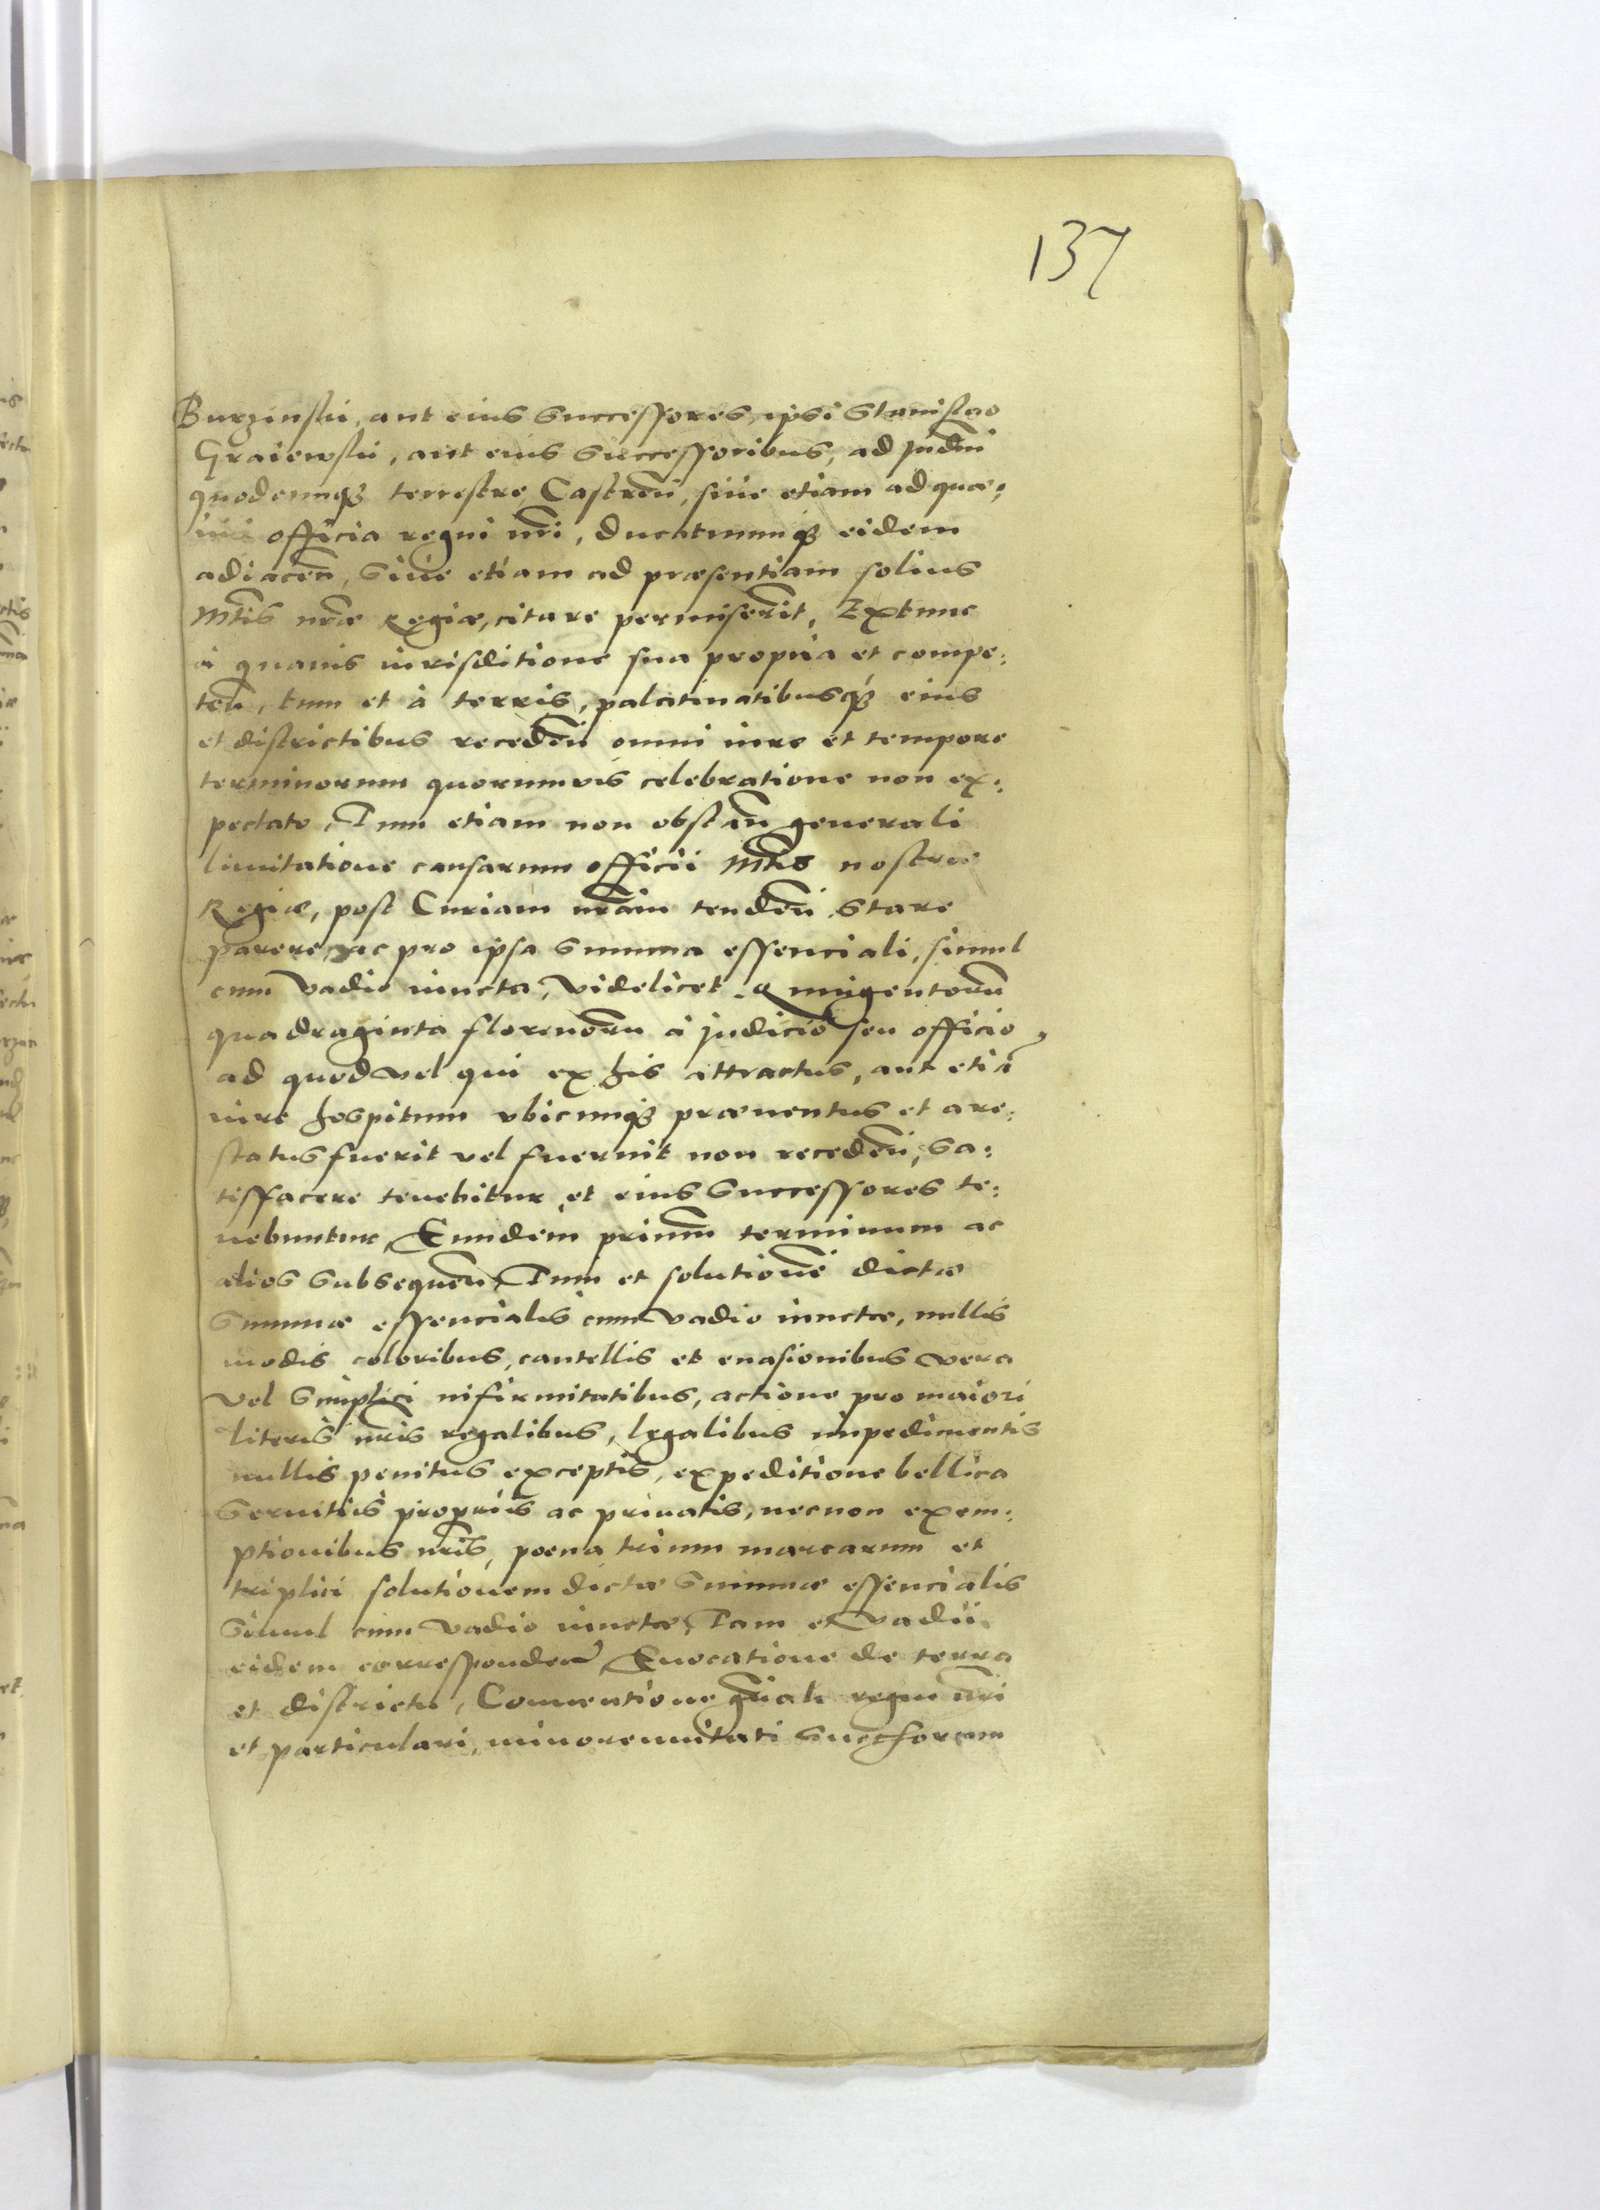 137
Burzinskii, aut eius successores, ipsi Stanislao
Graiewskii, aut eius successoribus, ad Judm̃
quodcunqȝ terrestre, Castreñ, siue etiam ad quæ-
uis officia regni nr̃i, ducatuumqȝ eidem
adiaceñ, siue etiam ad præsentiam solius
Mtĩs nræ Regiæ, citare permiserit, Extunc
à quauis iurisditione sua propria et compe-
teñ, tum et à terris, palatinatibusqȝ eius
et districtibus recedeñ omni iure et tempore
terminorum quorumuis celebratione non ex-
pectato, Tum etiam non obstañ generali
limitatione causarum officii Mtĩs nostræ
Regiæ, post Curiam nrãm tendeñ. Stare
parere, ac pro ipsa summa essenciali, simul
cum vadio iuncta, videlicet Quingentorũ
quadraginta florenorũ à judicio seu officio,
ad quod vel qui ex his attractus, aut etiã
iure hospitum vbicunqȝ præuentus et are-
status fuerit vel fuerint non recedeñ, sa-
tisfacere tenebitur, et eius successores te-
nebuntur, Eundem primũ terminum ac
alios subsequeñ, Tum et solutionẽ dictæ
Summæ essencialis cum vadio iunctæ, nullis
modis coloribus, cautellis et euasionibus vera
vel simplici infirmitatibus, actione pro maiori
literis nr̃is regalibus, legalibus impedimentis
nullis penitus exceptis, expeditione bellica
Seruitiis propriis ac priuatis, necnon exem-
ptionibus nr̃is, poena trium marcarum et
triplici solutionem dictæ summæ essencialis
Simul cum vadio iunctæ, Tam et vadii
eidem correspondeñ, Euocatione de terra
et districtu, Conuentione gñali regni nr̃i
et particulari, minorennitati succſſorum